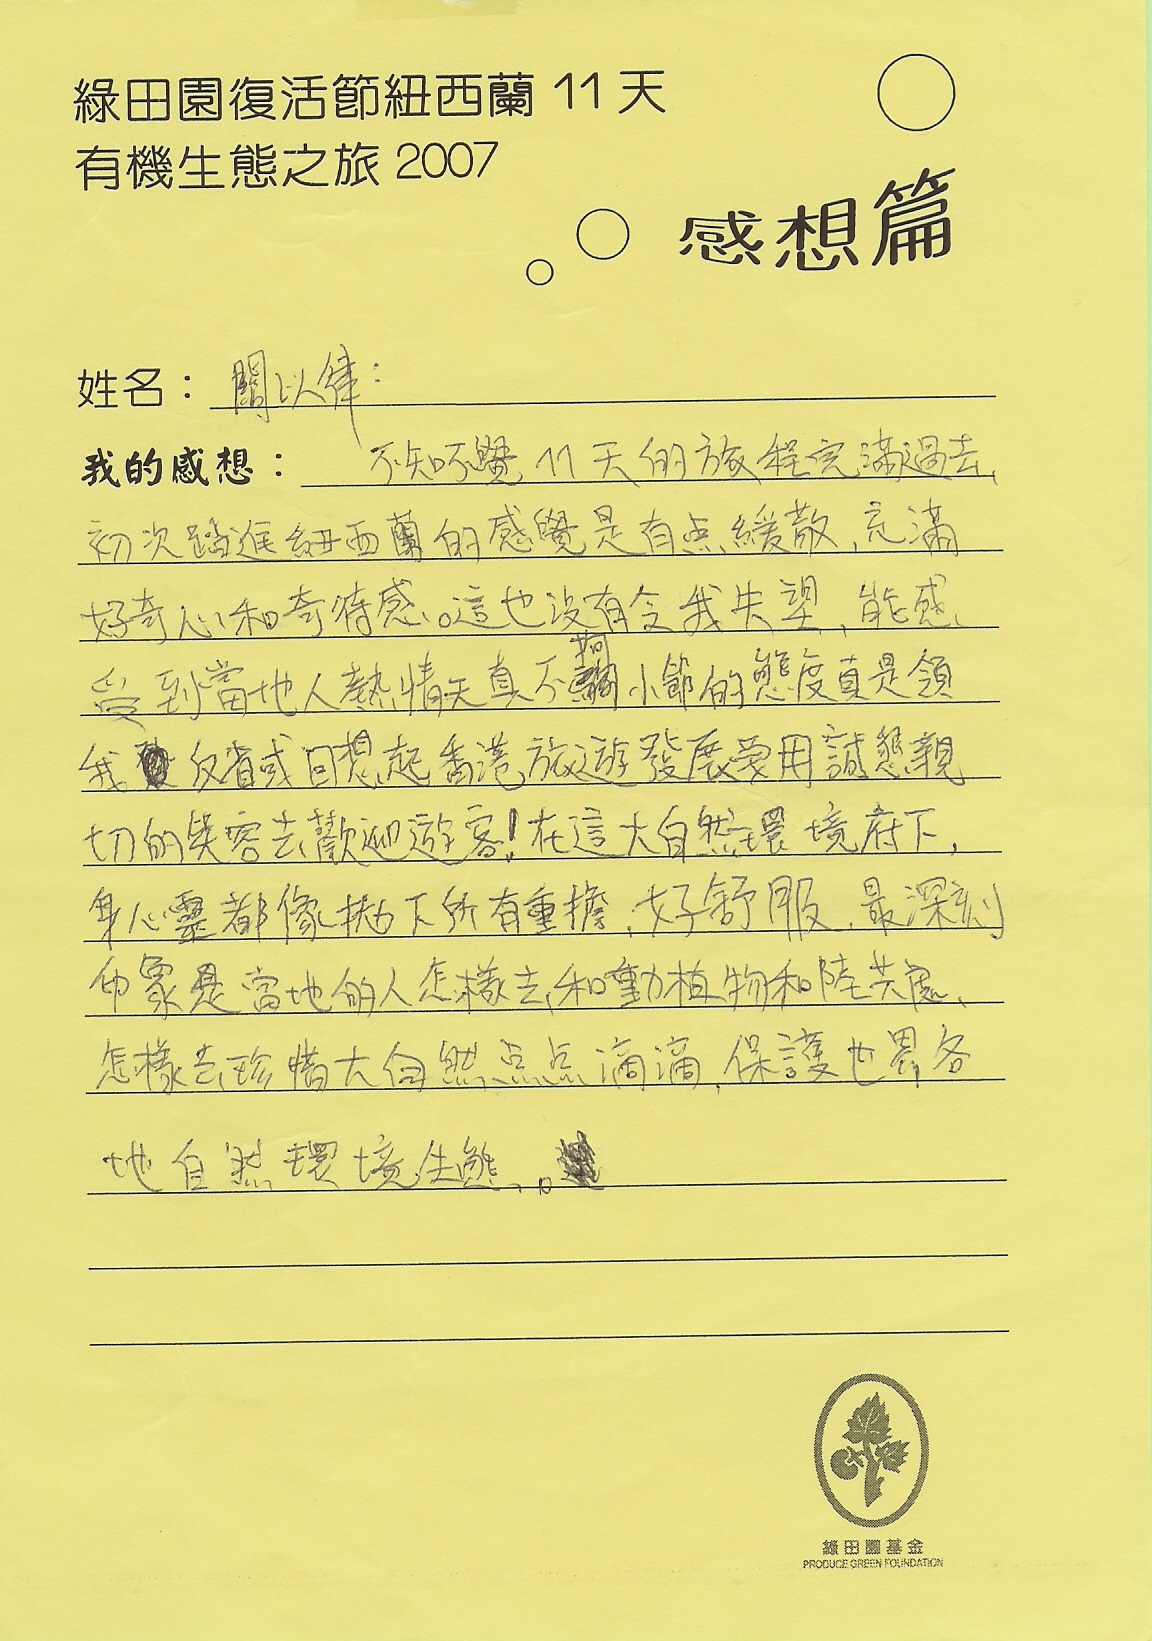 綠田園復活節紐西蘭 11 天
有機生態之旅 2007
感想篇
姓名：關以律：
我的感想： 不知不覺 11 天的旅程完滿過去,
初次踏進紐西蘭的感覺是有点緩散,充滿
好奇心和奇待感。這也没有令我失望,能感
受到當地人熱情天真不拘小節的態度真是領
我反省或回想起香港旅遊發展要用誠懇親
切的笑容去歡迎遊客!在這大自然環境府下,
身心靈都像拋下所有重擔,好舒服,最深刻
印象是當地的人怎樣去和動植物和陸共處、
怎樣去珍惜大自然点点滴滴,保護世界各
地自然環境生態。
綠田園基金
PRODUCE GREEN FOUNDATION